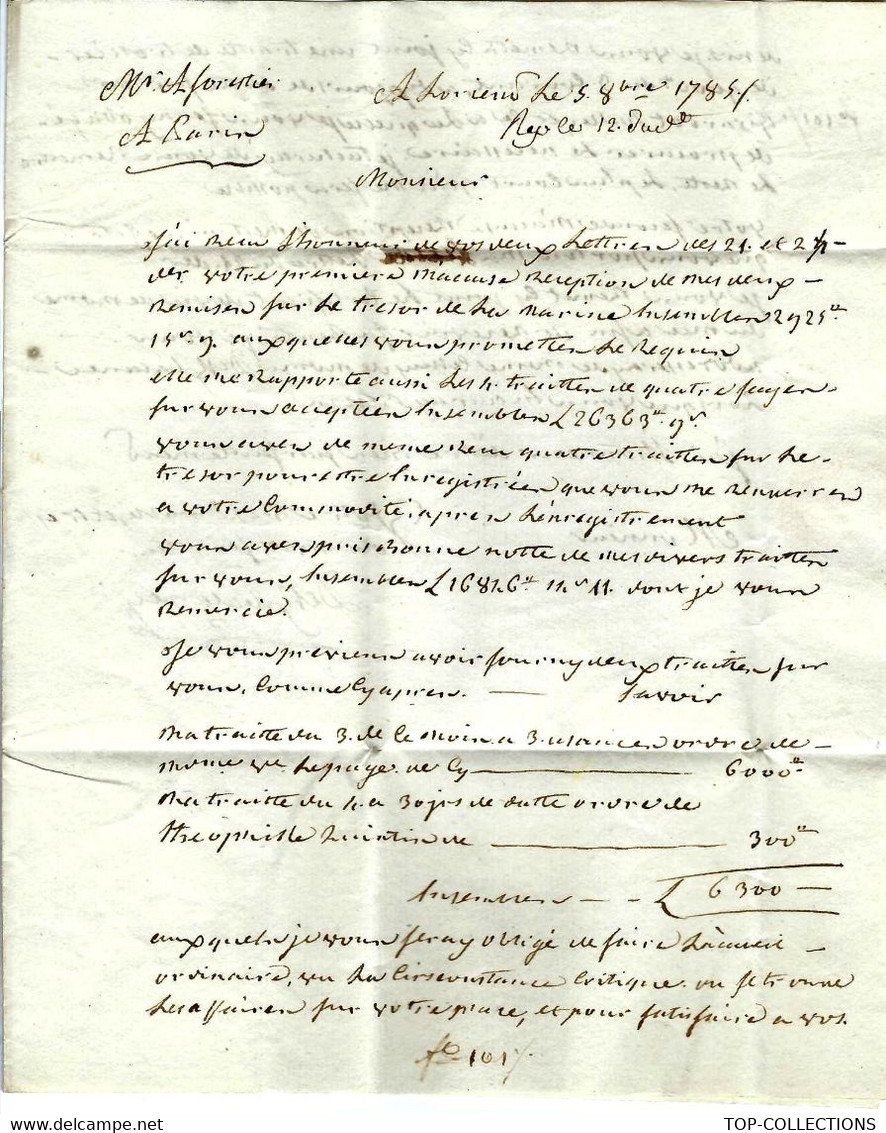 Mr. A forestier
A Lorient Le 5. 8bre 1785/.
A Paris
Rep le 12. dud
Monsieur
J'ai Receu l'honneur de vos deux Lettres des 21. et 2
der votre premiere M'accuse Reception de Mes deux
Remises sur Le tresor de La Marine Ensembles
auxquelles vous promettes Le Requis
elle me Rapporte aussi Les 4. traittes de quatre
sur vous acceptées Ensembles L 26363
vous aves de meme Receu quatre traittes sur Le
tresor pour estre Enregistrées que vous me Renverres
a votre Commodité, apres L'enregistrement
vous aves pris Bonne notte de Mes divers traittes
sur vous, Ensembles L 16846 11. dont je vous
Remercie.
Je vous previens avoir fourny deux traittes sur
vous, Comme Cy apres. — Savoir
Ma traitte du 3. de Ce Mois a 3. usances ordre de
Lepage de Cy — 6000
Ma traitte du 4. a 30 jrs de datte ordre de
theophille Quintin de — 300
Ensembles — L 6300 —
auxquels je vous seray obligé de faire L'acueil
ordinaire, vu La Circonstance Critique ou se trouve
Les affaires sur votre place, et pour satisfaire a vos
fo 101/.
TOP-COLLECTIONS